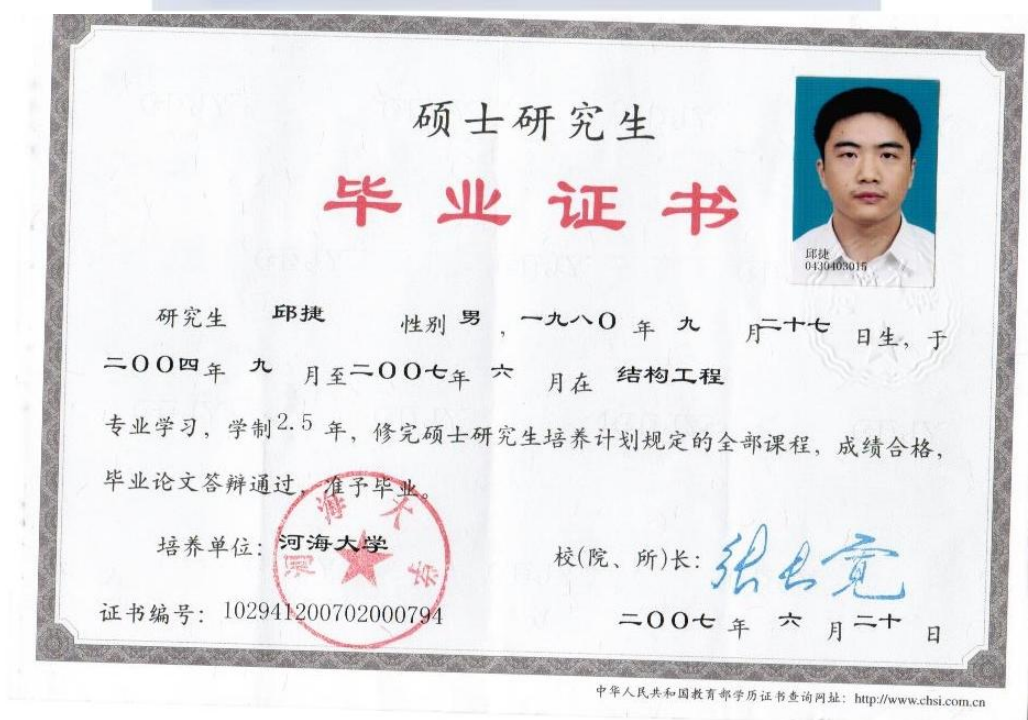 硕士研究生
毕业证书
邱捷
0430403015
研究生 邱捷 性别 男 ，一九八〇 年 九 月 二十七 日生，于
二〇〇四 年 九 月至 二〇〇七 年 六 月在 结构工程
专业学习，学制 2.5 年，修完硕士研究生培养计划规定的全部课程，成绩合格，
毕业论文答辩通过，准予毕业。
河海大学
培养单位：河海大学
校(院、所)长：张长宽
证书编号：102941200702000794
二〇〇七 年 六 月 二十 日
中华人民共和国教育部学历证书查询网址：http://www.chsi.com.cn